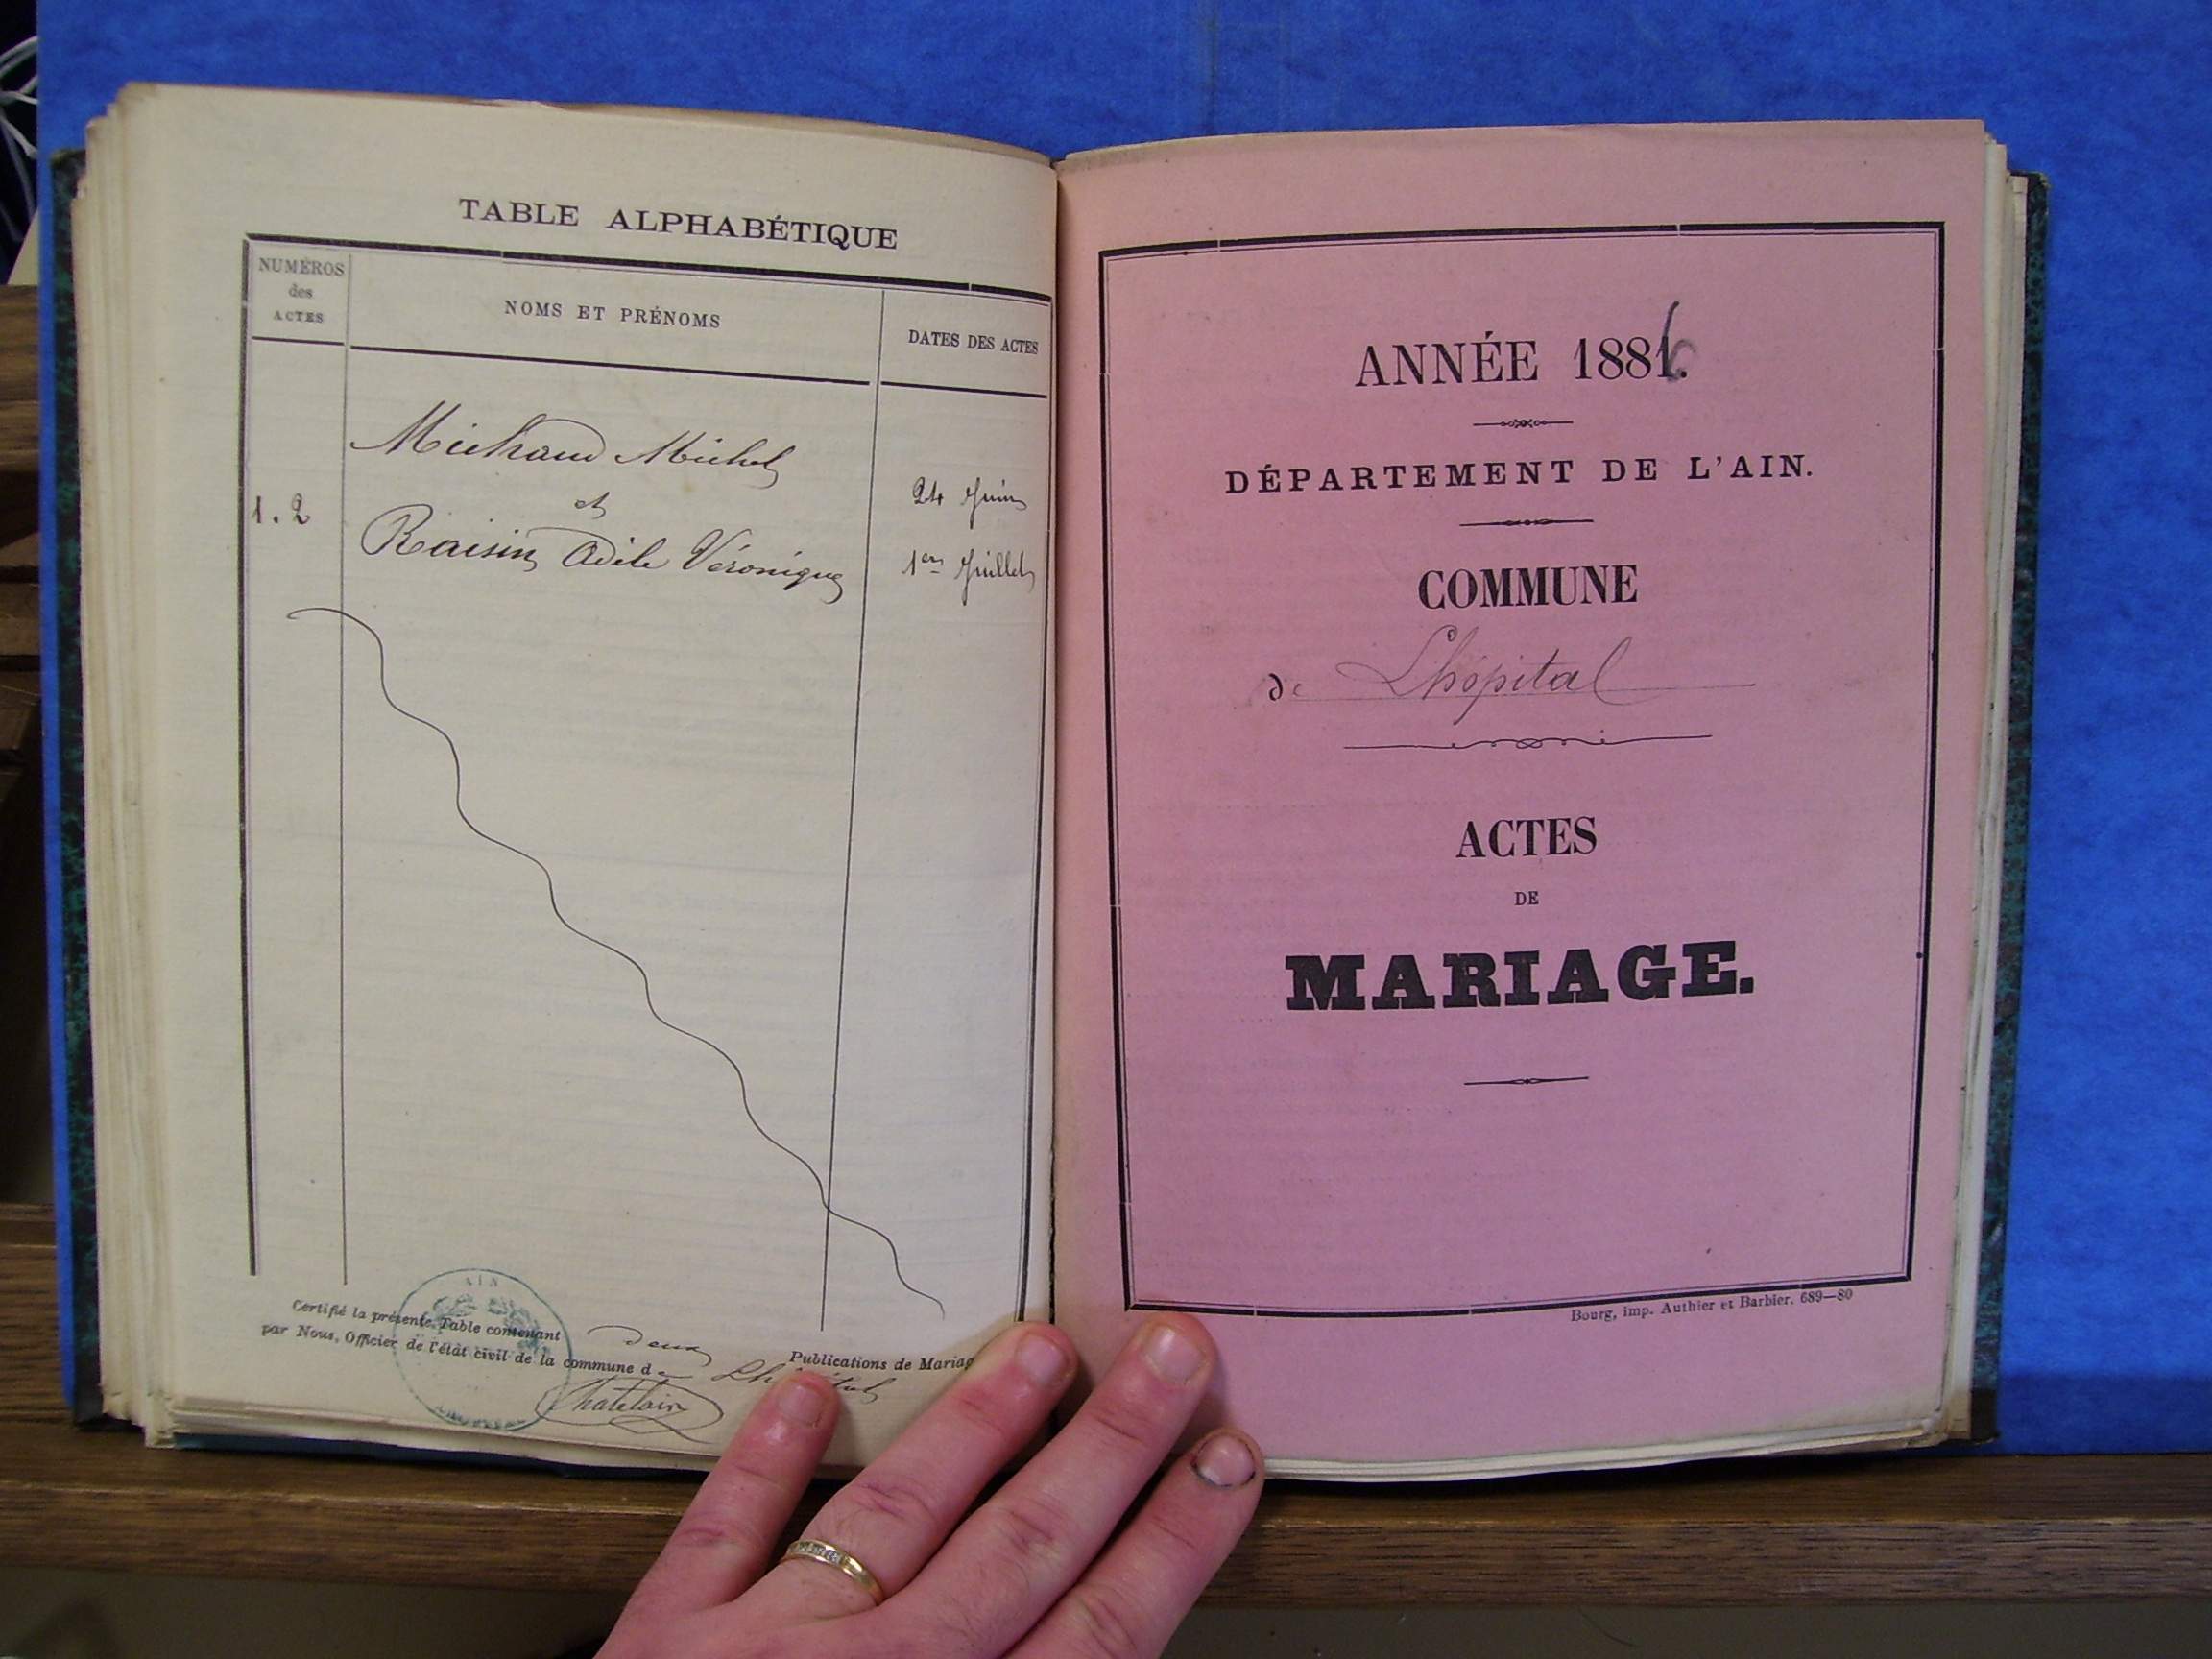 TABLE ALPHABÉTIQUE
NUMÉROS
des
ACTES
NOMS ET PRÉNOMS
DATES DES ACTES
Michaud Michel
et
1.2
Raisin Adile Véronique
24 Juin
1er Juillet
AIN
Certifié la présente Table contenant deux Publications de Mariag
par Nous, Officier de l'état civil de la commune de
Chatelain
ANNÉE 1886.
DÉPARTEMENT DE L'AIN.
COMMUNE
de Lhôpital
ACTES
DE
MARIAGE.
Bourg, imp. Authier et Barbier. 689—80